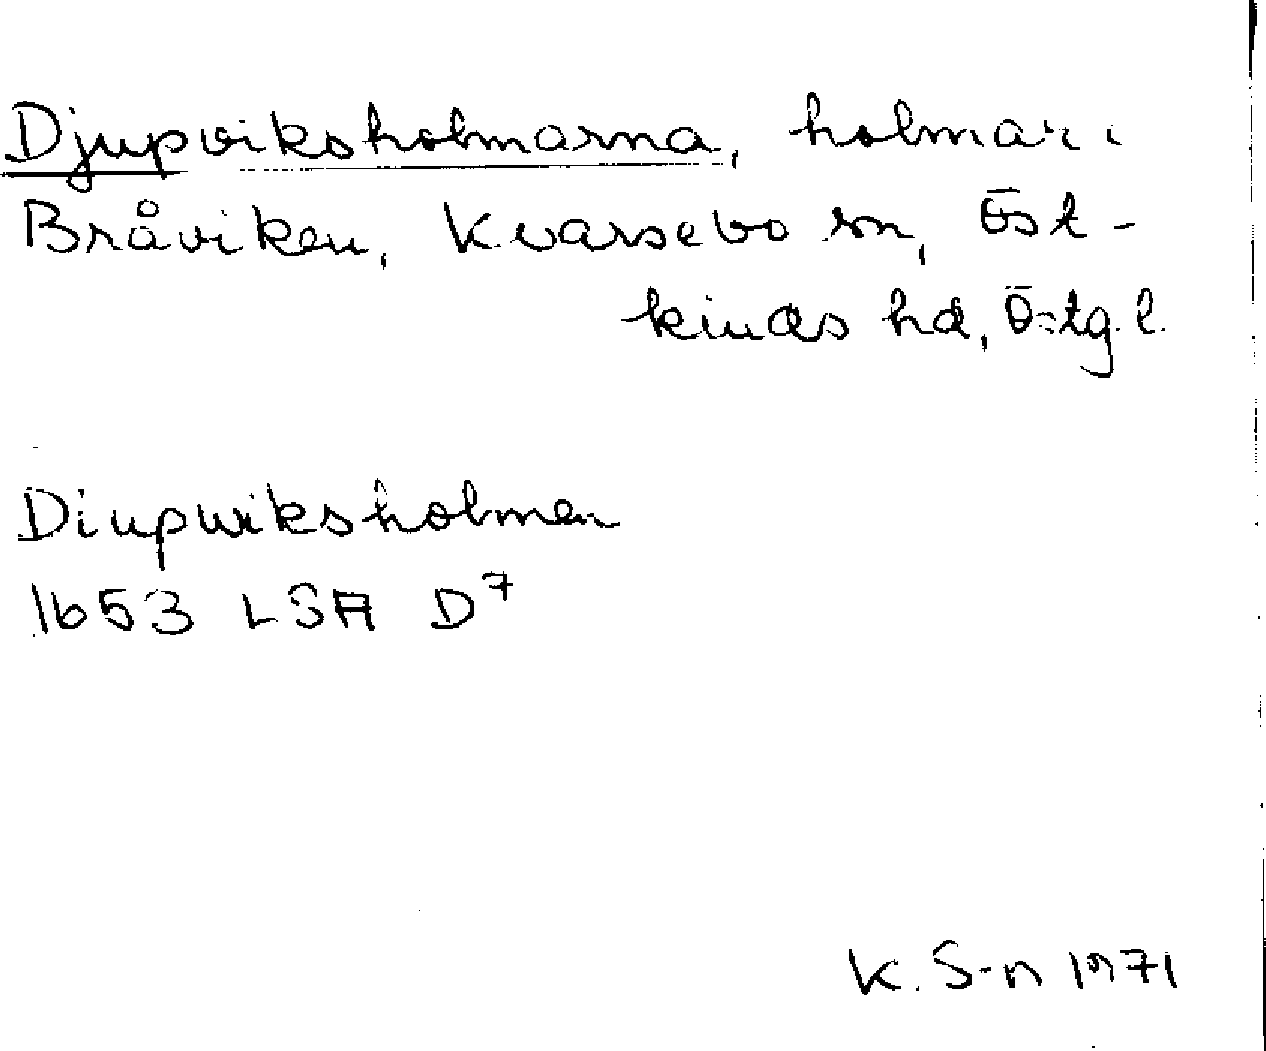 Djupviksholmarna, holmar i
Bråviken, Kvarsebo sn, Öst-
kinds hd, Östg. l.
Diupwiksholmen
1653 LSA D7
K. S-n 1971